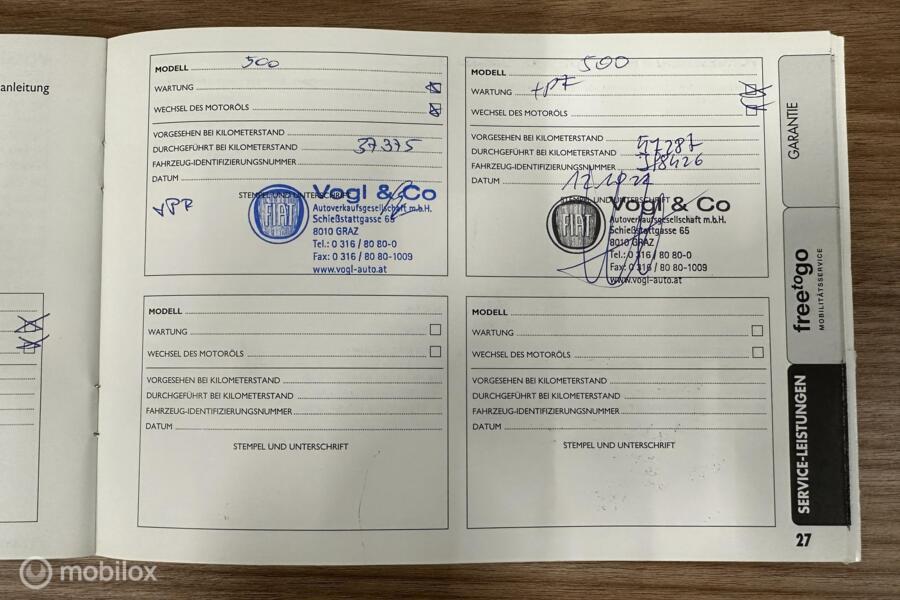 anleitung
MODELL 500
WARTUNG
WECHSEL DES MOTORÖLS
VORGESEHEN BEI KILOMETERSTAND
DURCHGEFÜHRT BEI KILOMETERSTAND 37375
FAHRZEUG-IDENTIFIZIERUNGSNUMMER
DATUM
STEMPEL UND UNTERSCHRIFT
FIAT
Vogl & Co
Autoverkaufsgesellschaft m.b.H.
Schießstattgasse 65
8010 GRAZ
Tel.: 0 316 / 80 80-0
Fax: 0 316 / 80 80-1009
www.vogl-auto.at
MODELL 500
WARTUNG
WECHSEL DES MOTORÖLS
VORGESEHEN BEI KILOMETERSTAND
DURCHGEFÜHRT BEI KILOMETERSTAND 47287
FAHRZEUG-IDENTIFIZIERUNGSNUMMER
DATUM
STEMPEL UND UNTERSCHRIFT
FIAT
Vogl & Co
Autoverkaufsgesellschaft m.b.H.
Schießstattgasse 65
8010 GRAZ
Tel.: 0 316 / 80 80-0
Fax: 0 316 / 80 80-1009
www.vogl-auto.at
MODELL
WARTUNG
WECHSEL DES MOTORÖLS
VORGESEHEN BEI KILOMETERSTAND
DURCHGEFÜHRT BEI KILOMETERSTAND
FAHRZEUG-IDENTIFIZIERUNGSNUMMER
DATUM
STEMPEL UND UNTERSCHRIFT
MODELL
WARTUNG
WECHSEL DES MOTORÖLS
VORGESEHEN BEI KILOMETERSTAND
DURCHGEFÜHRT BEI KILOMETERSTAND
FAHRZEUG-IDENTIFIZIERUNGSNUMMER
DATUM
STEMPEL UND UNTERSCHRIFT
GARANTIE
freetogo
MOBILITÄTSSERVICE
SERVICE-LEISTUNGEN
27
mobilox